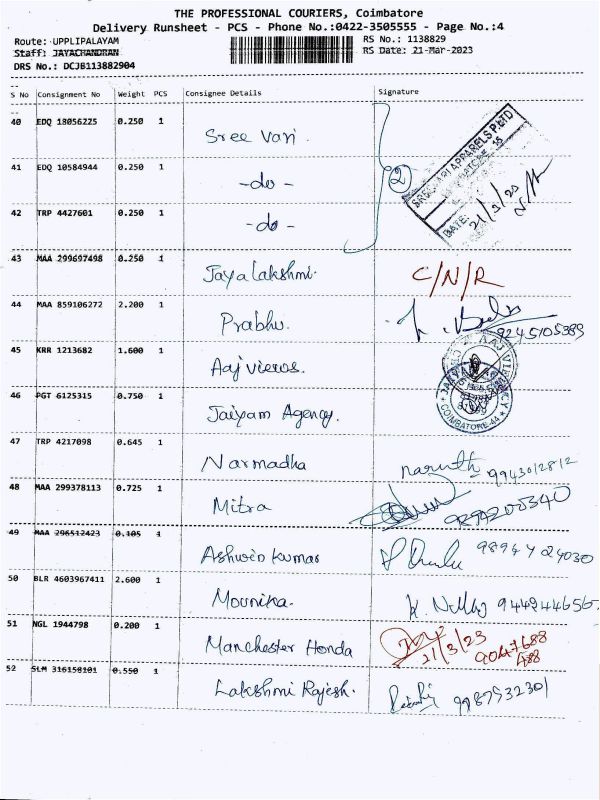 THE PROFESSIONAL COURIERS, Coimbatore
Delivery Runsheet - PCS - Phone No.:0422-3505555 - Page No.:4
Route: UPPLIPALAYAM
RS No.: 1138829
Staff: JAYACHANDRAN
RS Date: 21-Mar-2023
DRS No.: DCJB113882904
S No Consignment No Weight PCS Consignee Details Signature
40 EDQ 18056225 0.250 1 Sree Vari.
SREE VARI APPARELS P LTD
DATE: 21/3/23
41 EDQ 10584944 0.250 1 -do- 2
42 TRP 4427601 0.250 1 -do-
43 MAA 299697498 0.250 1 Jayalakshmi. C/N/R
44 MAA 859106272 2.200 1 Prabhu. 9245105389
45 KRR 1213682 1.600 1 Aaj views.
46 PGT 6125315 0.750 1 Jaiyam Agency.
COIMBATORE-44
47 TRP 4217098 0.645 1 Narmadha 9943012812
48 MAA 299378113 0.725 1 Mitra
49 MAA 296512423 0.105 1 Ashwin kumar
50 BLR 4603967411 2.600 1 Mounika. 944944656
51 NGL 1944798 0.200 1 Manchester Honda 21/3/23
52 SLM 316158101 0.550 1 Lakshmi Rajesh.